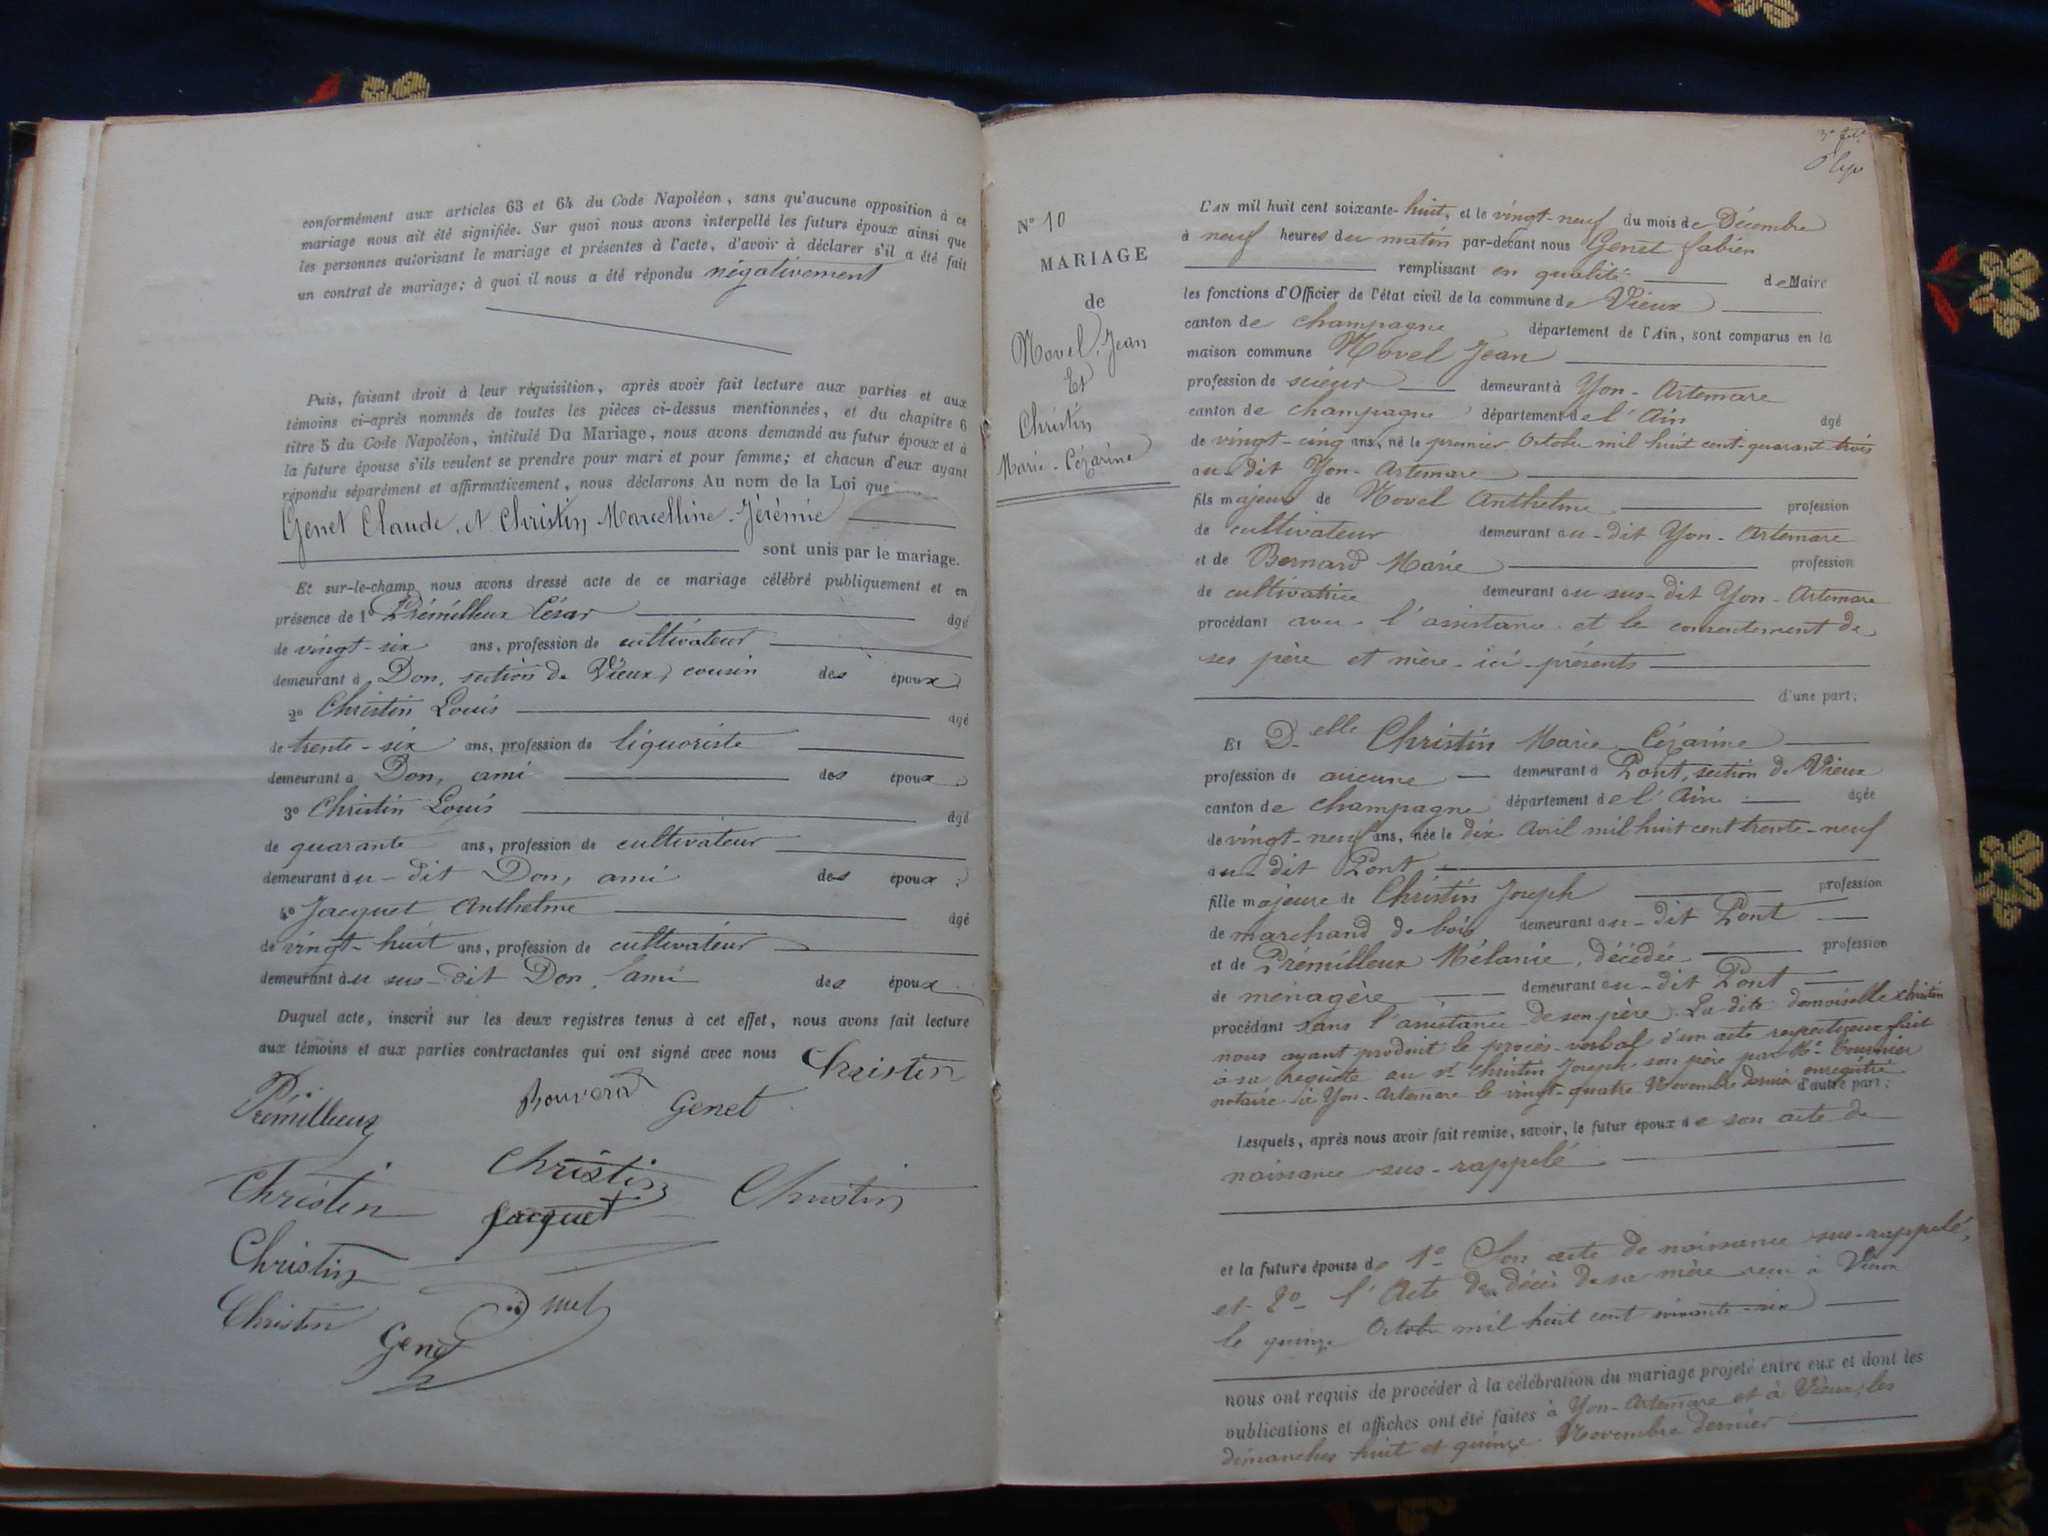 conformément aux articles 63 et 64 du Code Napoléon, sans qu'aucune opposition à ce
mariage nous ait été signifiée. Sur quoi nous avons interpellé les futurs époux ainsi que
les personnes autorisant le mariage et présentes à l'acte, d'avoir à déclarer s'il a été fait
un contrat de mariage; à quoi il nous a été répondu négativement
Puis, faisant droit à leur réquisition, après avoir fait lecture aux parties et aux
témoins ci-après nommés de toutes les pièces ci-dessus mentionnées, et du chapitre 6
titre 5 du Code Napoléon, intitulé Du Mariage, nous avons demandé au futur époux et à
la future épouse s'ils veulent se prendre pour mari et pour femme; et chacun d'eux ayant
répondu séparément et affirmativement, nous déclarons Au nom de la Loi que
Genet Claude et Christin Marcelline-Jérémie
sont unis par le mariage.
Et sur-le-champ nous avons dressé acte de ce mariage célébré publiquement et en
présence de 1º Prémilleux César âgé
de vingt-six ans, profession de cultivateur
demeurant à Don, section de Vieux, cousin des époux;
2º Christin Louis âgé
de trente-six ans, profession de liquoriste
demeurant à Don, ami des époux;
3º Christin Louis âgé
de quarante ans, profession de cultivateur
demeurant au-dit Don, ami des époux;
4º Jacquet Anthelme âgé
de vingt-huit ans, profession de cultivateur
demeurant au sus-dit Don, ami des époux.
Duquel acte, inscrit sur les deux registres tenus à cet effet, nous avons fait lecture
aux témoins et aux parties contractantes qui ont signé avec nous Christin
Prémilleux Bouverat Genet
Christin Christin Christin
Jacquet
Christin
Christin
Genet
Nº 10
MARIAGE
de
Novel, Jean
Et
Christin
Marie-Cézarine
L'AN mil huit cent soixante-huit, et le vingt-neuf du mois de Décembre
à neuf heures du matin par-devant nous Genet fabien
remplissant en qualité de Maire
les fonctions d'Officier de l'état civil de la commune de Vieux
canton de champagne département de l'Ain, sont comparus en la
maison commune Novel Jean
profession de scieur demeurant à Yon-Artemare
canton de champagne département de l'Ain âgé
de vingt-cinq ans, né le premier Octobre mil huit cent quarant-trois
au-dit Yon-Artemare
fils majeur de Novel Anthelme profession
de cultivateur demeurant au-dit Yon-Artemare
et de Bernard Marie profession
de cultivatrice demeurant au sus-dit Yon-Artemare
procédant avec l'assistance et le consentement de
ses père et mère-ici-présents
d'une part;
Et D-elle Christin Marie-Cézarine
profession de aucune demeurant à Pont, section de Vieux
canton de champagne département de l'Ain âgée
de vingt-neuf ans, née le dix Avril mil huit cent trente-neuf
au-dit Pont
fille majeure de Christin Joseph profession
de marchand de bois demeurant au-dit Pont
et de Prémilleux Mélanie, décédée profession
de ménagère demeurant au-dit Pont
procédant sans l'assistance de son père. La dite demoiselle christin
nous ayant produit le procès-verbal d'un acte respectueux fait
à sa requête au sr Christin Joseph, son père par Me
notaire à Yon-Artemare le vingt-quatre Novembre dernier enregistré
d'autre part;
Lesquels, après nous avoir fait remise, savoir, le futur époux de son acte de
naissance sus-rappelé
et la future épouse de 1º Son acte de naissance sus-rappelé,
et 2º l'Acte de décès de sa mère reçu à Vieux
le quinze Octobre mil huit cent soixante-six
nous ont requis de procéder à la célébration du mariage projeté entre eux et dont les
publications et affiches ont été faites à Yon-Artemare et à Vieux, les
dimanches huit et quinze Novembre dernier